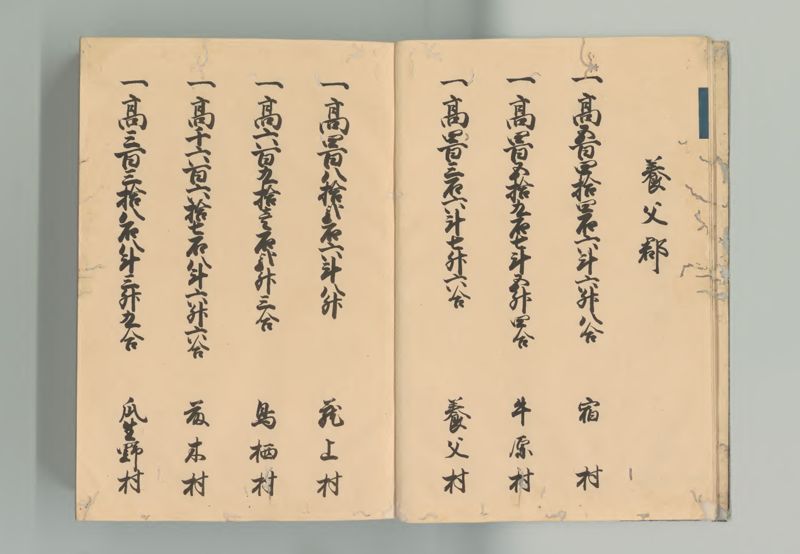 養父郡
一高五百四拾四石六斗六升八合 宿村
一高四百五拾九石七斗五升四合 牛原村
一高四百三石六斗七升六合 養父村
一高四百八拾弐石六斗八升 蔵上村
一高六百九拾壱石弐升三合 鳥栖村
一高千六百六拾七石八斗六升六合 藤木村
一高三百三拾八石八斗三升九合 瓜生野村